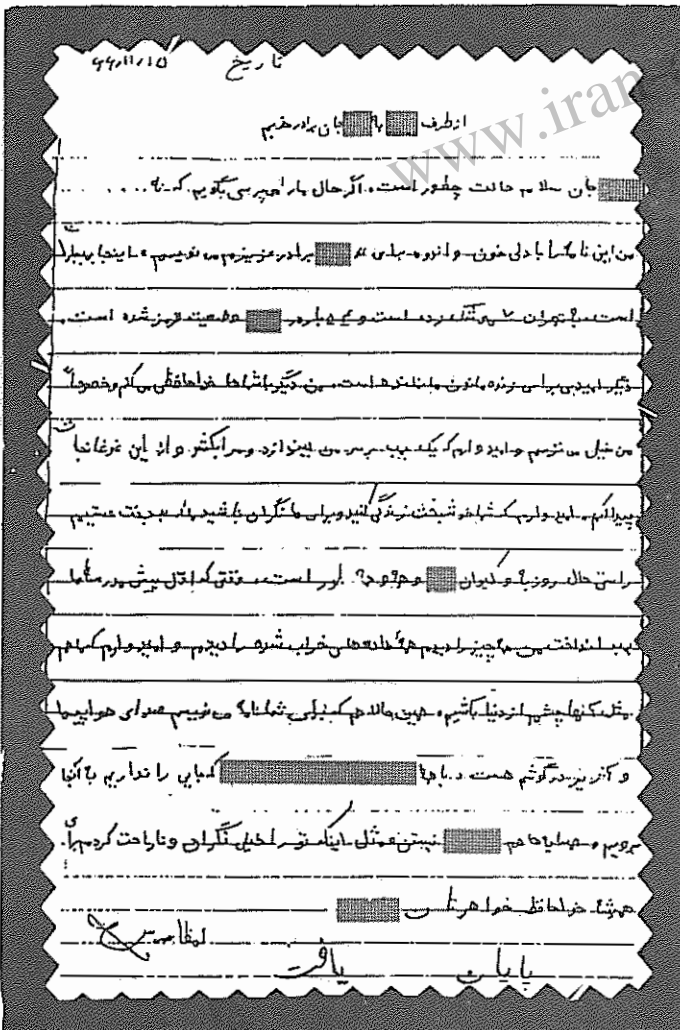 تاریخ ۶۶/۱۱/۱۵
www.iran
از طرف به جان برادر خوبم
جان سلام حالت چطور است. اگر حال ما را میپرسی بگویم که نه . . . .
من این نامه را با دلی خون و اندوه برای تو برادر عزیزم می نویسم. اینجا بمباران
است، به تهران ۷ موشک زده است و دوباره وضعیت قرمز شده است.
دیگر امیدی برای زنده ماندن ما نمانده است. من دیگر با شماها خداحافظی می کنم و خصوصاً
من خیلی می ترسم و امیدوارم که یک بمب بر سر من بیندازد و مرا بکشد و از این غوغا نجات
پیدا کنم. امیدوارم که شما خوشبخت زندگی کنید و برای ما نگران نباشید، ما بدبخت هستیم
راستی حال روزبه و کیوان و چطور است. وقتی که اول پیش در
بمب انداخت من همه چیز را دیدم همه خانه های خراب شده را دیدم و امیدوارم که ما هم
مثل آنها چشم از دنیا باشیم. همین حالا هم که برای شما نامه می نویسم صدای هواپیما
و آژیر در گوشم هست که جایی را نداریم به آنجا
برویم هم نیستن. مثل اینکه تو را خیلی نگران و ناراحت کردم برای
همیشه خداحافظ خواهرتان
لطفا
پایان یافت